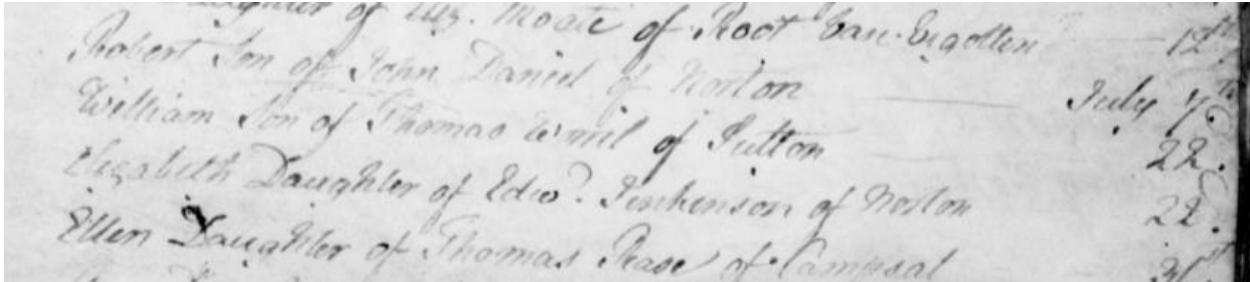 Daughter of Eliz. Moate of Root 12th
Robert Son of John Daniel of Norton July 7th
William Son of Thomas of Sutton 22d.
Elizabeth Daughter of Edwd. Jenkinson of Norton 22d.
Ellen Daughter of Thomas Pease of Campsal 31st